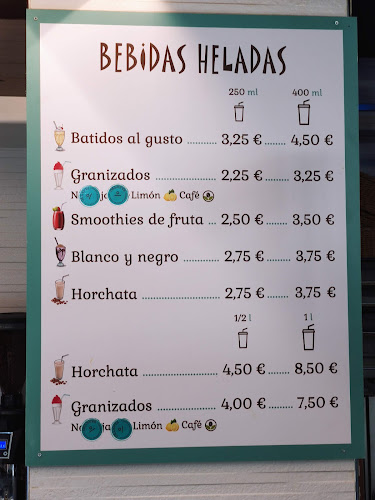 BEBIDAS HELADAS
250 ml 400 ml
Batidos al gusto .......... 3,25 € ....... 4,50 €
Granizados .................. 2,25 € ........ 3,25 €
Limón Café
Smoothies de fruta ... 2,50 € ........ 3,50 €
Blanco y negro ........... 2,75 € ........ 3,75 €
Horchata ..................... 2,75 € ........ 3,75 €
1/2 l 1 l
Horchata ..................... 4,50 € ....... 8,50 €
Granizados .................. 4,00 € ....... 7,50 €
Limón Café